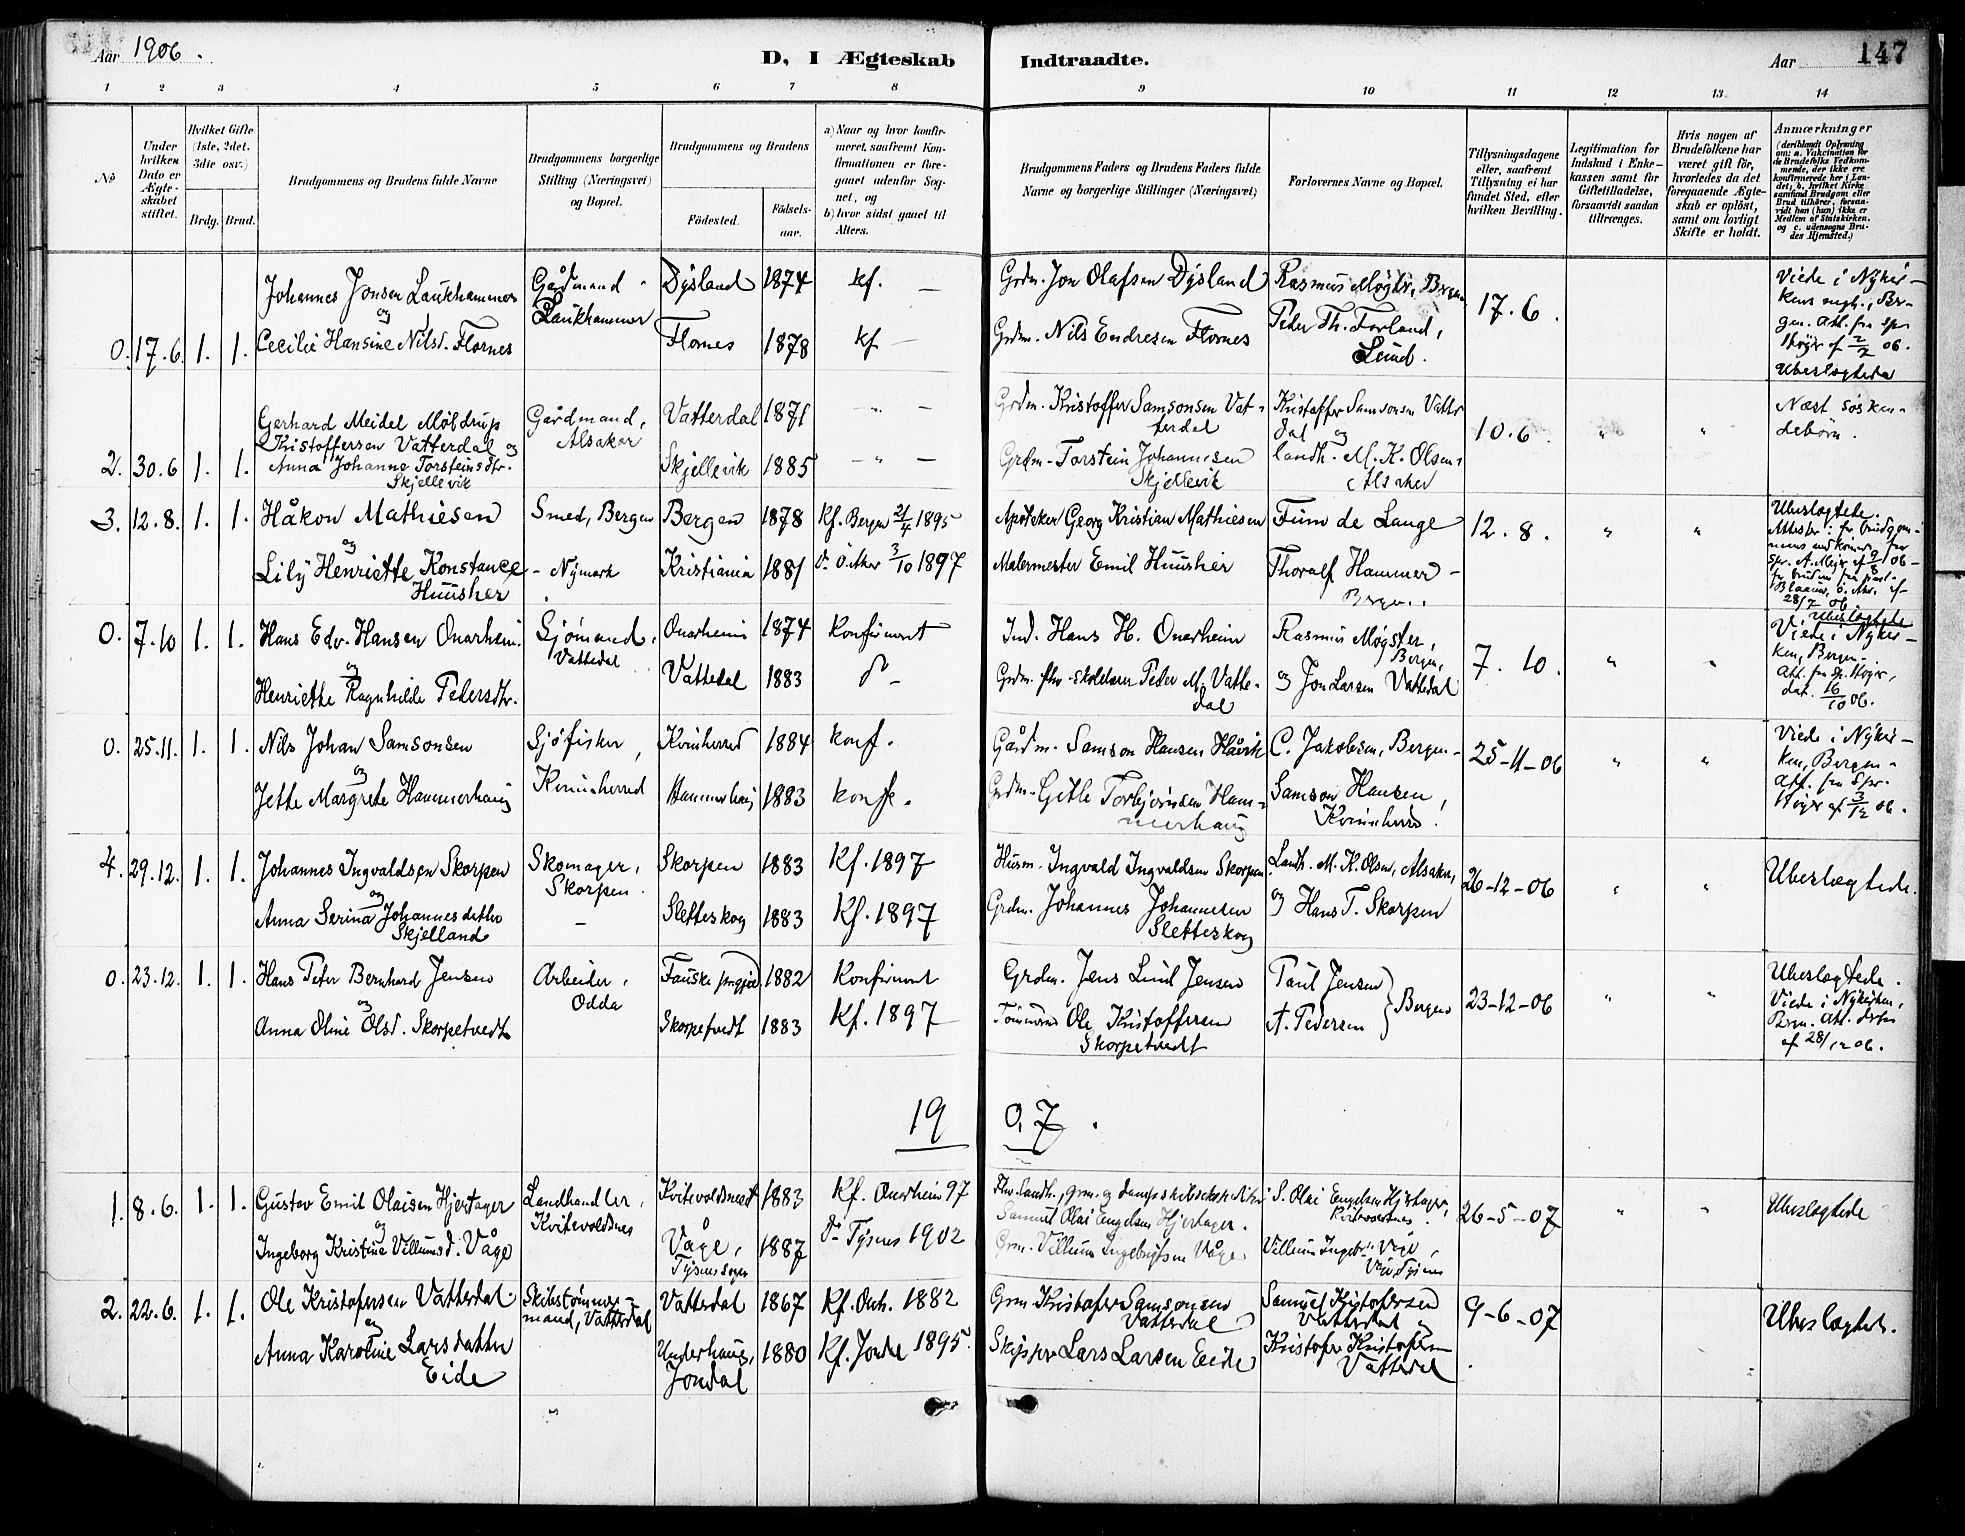 Aar 1906.
D, I Ægteskab Indtraadte.
Aar
147
1 2 3 4 5 6 7 8 9 10 11 12 13 14
No
Under hvilken Dato er Ægteskabet stiftet.
Hvilket Gifte (1ste, 2det, 3die osv.)
Brdg. Brud.
Brudgommens og Brudens fulde Navne
Brudgommens borgerlige Stilling (Næringsvei) og Bopæl.
Brudgommens og Brudens
Födested.
Födselsaar.
a) Naar og hvor konfirmeret, saafremt Konfirmationen er foregaaet udenfor Sognet, og
b) hvor sidst gaaet til Alters.
Brudgommens Faders og Brudens Faders fulde Navne og borgerlige Stillinger (Næringsvei)
Forlovernes Navne og Bopæl.
Tillysningsdagene eller, saafremt Tillysning ei har fundet Sted, efter hvilken Bevilling.
Legitimation for Indskud i Enkekassen samt for Giftetilladelse, forsaavidt saadan tiltrænges.
Hvis nogen af Brudefolkene har været gift før, hvorledes da det foregaaende Ægteskab er oplöst, samt om lovligt Skifte er holdt.
Anmærkninger (deriblandt Oplysning om: a. Vakcination for de Brudefolks Vedkommende, der ikke ere konfirmerede her i Landet; b. hvilket Kirkesamfund Brudgom eller Brud tilhører, forsaavidt han (hun) ikke er Medlem af Statskirken, og c. udensogns Brudes Hjemsted.)
0. 17.6 1. 1.
Johannes Jonsen Laukhammer
og
Cecilie Hansine Nilsd. Flornes
Gårdmand
Laukhammer
Dysland 1874 kf. —
Flornes 1878 kf —
Grdm. Jon Olafsen Dysland
Grdm. Nils Endresen Flornes
Rasmus Møgstr, Bergen
Peter Th. Forland,
Lund.
17.6.
Viede i Nykirken
Bergen. Att. fra Spr.
af 2/7 06.
Ubeslægtede
2. 30.6 1. 1.
Gerhard Meidel Möldrup
Kristoffersen Vatterdal og
Anna Johanne Torsteinsdtr.
Skjellevik
Gårdmand,
Alsaker
Vatterdal 1871 " —
Skjellevik 1885 — " —
Grdm. Kristoffer Samsonsen Vatterdal
Grdm. Torstein Johannesen
Skjellevik
Kristoffer Samsonsen Vatterdal og
landh. M. K. Olsen,
Alsaker
10.6. " "
Næst søskendebörn.
3. 12.8. 1. 1.
Håkon Mathiesen
og
Lily Henriette Konstance
Huusher
Smed, Bergen
- Nymark
Bergen 1878 Kf. Bergen 21/4 1895
Kristiania 1881 do Ö. Aker 3/10 1897
Apoteker Georg Kristian Mathiesen
Malermester Emil Huusher
Finn de Lange
Thoralf Hammer -
Bergen.
12.8. " "
Ubeslægtede.
Attester: for brudgommens
Spr. A. Meyer af 9/8 06 -
for bruden fra
Blaauw, ö. Aker af
28/7 06
0. 7.10 1. 1.
Hans Edv. Hansen Onarheim.
og
Henriette Ragnhilde Pedersdtr.
Sjömand,
Vattedal
Onarheim 1874 Konfirmert
Vattedal 1883 do -
Ind. Hans H. Onarheim
Grdm. fhv. skolelærer Peder M. Vattedal
Rasmus Møgster,
Bergen,
og Jon Larsen Vattedal
7.10. " "
Ubeslægtede
Viede i Nykirken, Bergen.
Att. fra Sp. Høyer,
dat. 16/10 06.
0. 25.11. 1. 1.
Nils Johan Samsonsen
og
Jette Margrete Hammerhaug
Sjöfisker,
Kvinherred
Kvinherred 1884 konf.
Hammerhaug 1883 konf.
Gårdm. Samson Hansen Håvik
Grdm. Gitle Torbjörnsen Hammerhaug
C. Jakobsen, Bergen -
Samson Hansen,
Kvinherred.
25-11-06 " "
Viede i Nykirken, Bergen.
Att. fra Spr.
Høyer af 3/12 06.
4. 29.12. 1. 1.
Johannes Ingvaldsen Skorpen
og
Anna Serina Johannesdatter
Skjelland
Skomager,
Skorpen.
-
Skorpen 1883 Kf. 1897
Sletteskog 1883 Kf. 1897
Husm. Ingvald Ingvaldsen Skorpen
Grdm. Johannes Johannesen
Sletteskog
Landh. M. K. Olsen, Alsaker,
og Hans T. Skorpen
26-12-06 " "
Ubeslægtede.
0. 23.12. 1. 1.
Hans Peter Bernhard Jensen
og
Anna Oline Olsd. Skorpetvedt
Arbeider,
Odda
Fauske prgjd. 1882 Konfirmert
Skorpetvedt 1883 Kf. 1897
Grdm. Jens Lind Jensen
Tömmerm. Ole Kristoffersen
Skorpetvedt
Paul Jensen
A. Pedersen } Bergen
23-12-06 " "
Ubeslægtede.
Viede i Nykirken,
Brgn. Att. derfra
af 28/12 06.
19 0.7.
1. 8.6. 1. 1.
Gustav Emil Olaisen Hjertager
og
Ingeborg Kristine Villumsd. Våge
Landhandler,
Kvitevoldsnes
Kvitevoldsnes 1883 Kf. Onarheim 97
Våge, 1887 do Tysnes 1902
Tysnes sogn
Fhv. Landh., grm. og dampskibseksp.
Samuel Olai Engelsen Hjertager.
Grm. Villum Ingebrigtsen Våge
S. Olai Engelsen Hjertager,
Villum Ingebr. Våge,
Våge, Tysnes
26-5-07 " "
Ubeslægtede
2. 22.6. 1. 1.
Ole Kristofersen Vatterdal.
og
Anna Karoline Larsdatter
Eide
Skibstømmermand, Vatterdal
Vatterdal 1867 Kf. Onh. 1882
Underhaug, 1880 Kf. Jondal 1895.
Jondal
Grm. Kristofer Samsonsen
Vatterdal
Skipper Lars Larsen Eide
Samuel Kristofersen
Vatterdal og
Kristofer Kristofersen
Vatterdal
9-6-07
Ubeslægtet.